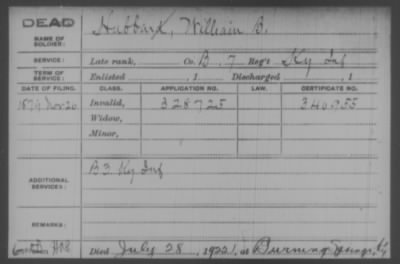 DEAD
NAME OF SOLDIER: Hubbard, William B.
SERVICE: Late rank, Co. B. 7 Reg't Ky Inf
TERM OF SERVICE: Enlisted , 1 Discharged , 1
DATE OF FILING. CLASS. APPLICATION NO. LAW. CERTIFICATE NO.
1879 Nov 20 Invalid, 328725 340955
Widow,
Minor,
ADDITIONAL SERVICES: B 3. Ky Inf
REMARKS:
Died July 28, 1922, at Burning Springs, Ky